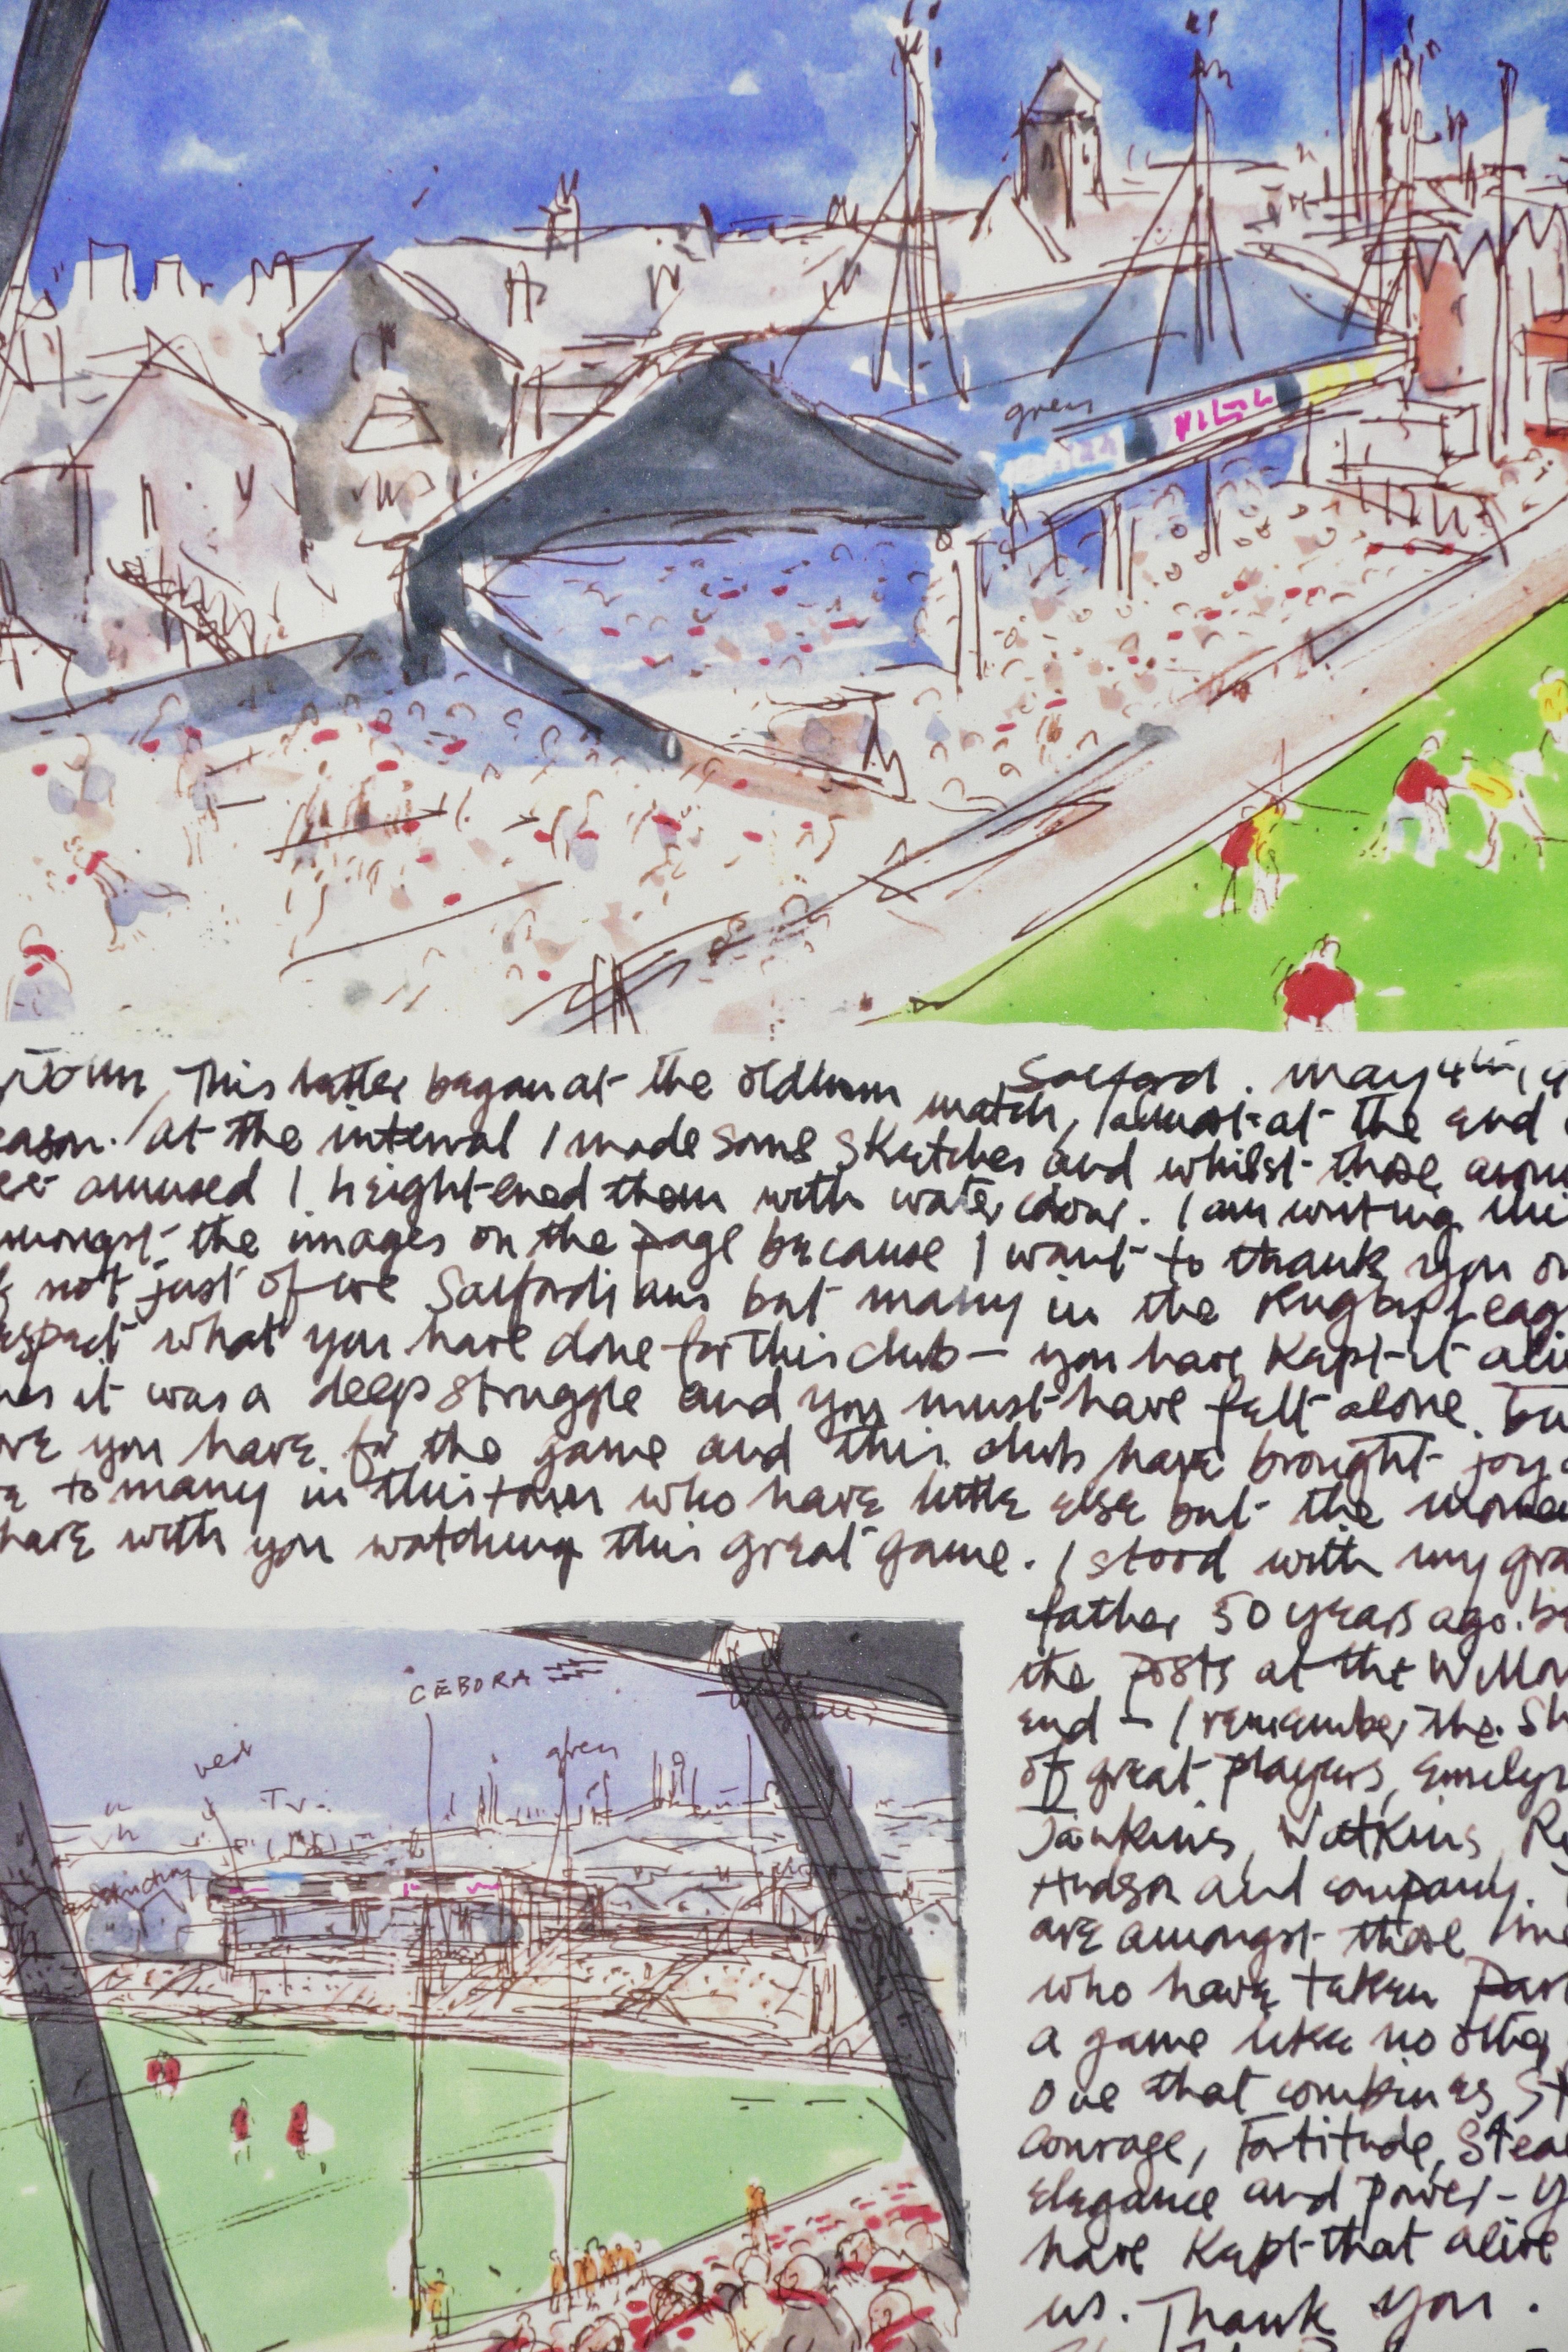 green
John, This letter began at the Oldham match, almost at the end
Salford. May 4th, 9
eason. At the interval I made some sketches and whilst those
amused I heightened them with water colour. I am writing
mongst the images on the page because I want to thank you
not just of we Salfordians but many in the Rugby Leag
spect what you have done for this club — you have kept it aliv
it was a deep struggle and you must have felt alone.
ove you have for the game and this club have brought joy
to many in this town who have little else but the
have with you watching this great game. I stood with my gra
father 50 years ago
the posts at the Willow
end — I remember the
of great players, Emelyn
Jenkins, Watkins, 
Hudson and company.
are amongst those
who have taken part
a game like no other
One that combines St
Courage, Fortitude, Stea
elegance and power - y
have kept that alive
us. Thank you.
CEBORA
red
green
T.V.